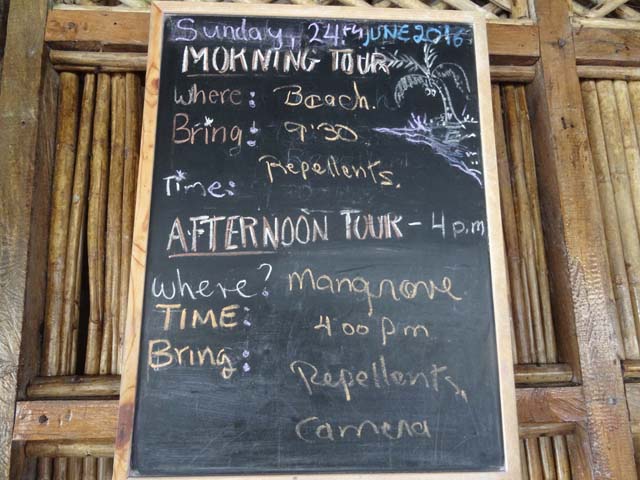 Sunday, 24TH JUNE
MORNING TOUR
Where: Beach.
Bring: 9:30
Repellents.
Time:
AFTERNOON TOUR - 4 p.m
Where? Mangrove
TIME: 4:00 pm
Bring: Repellents,
Camera